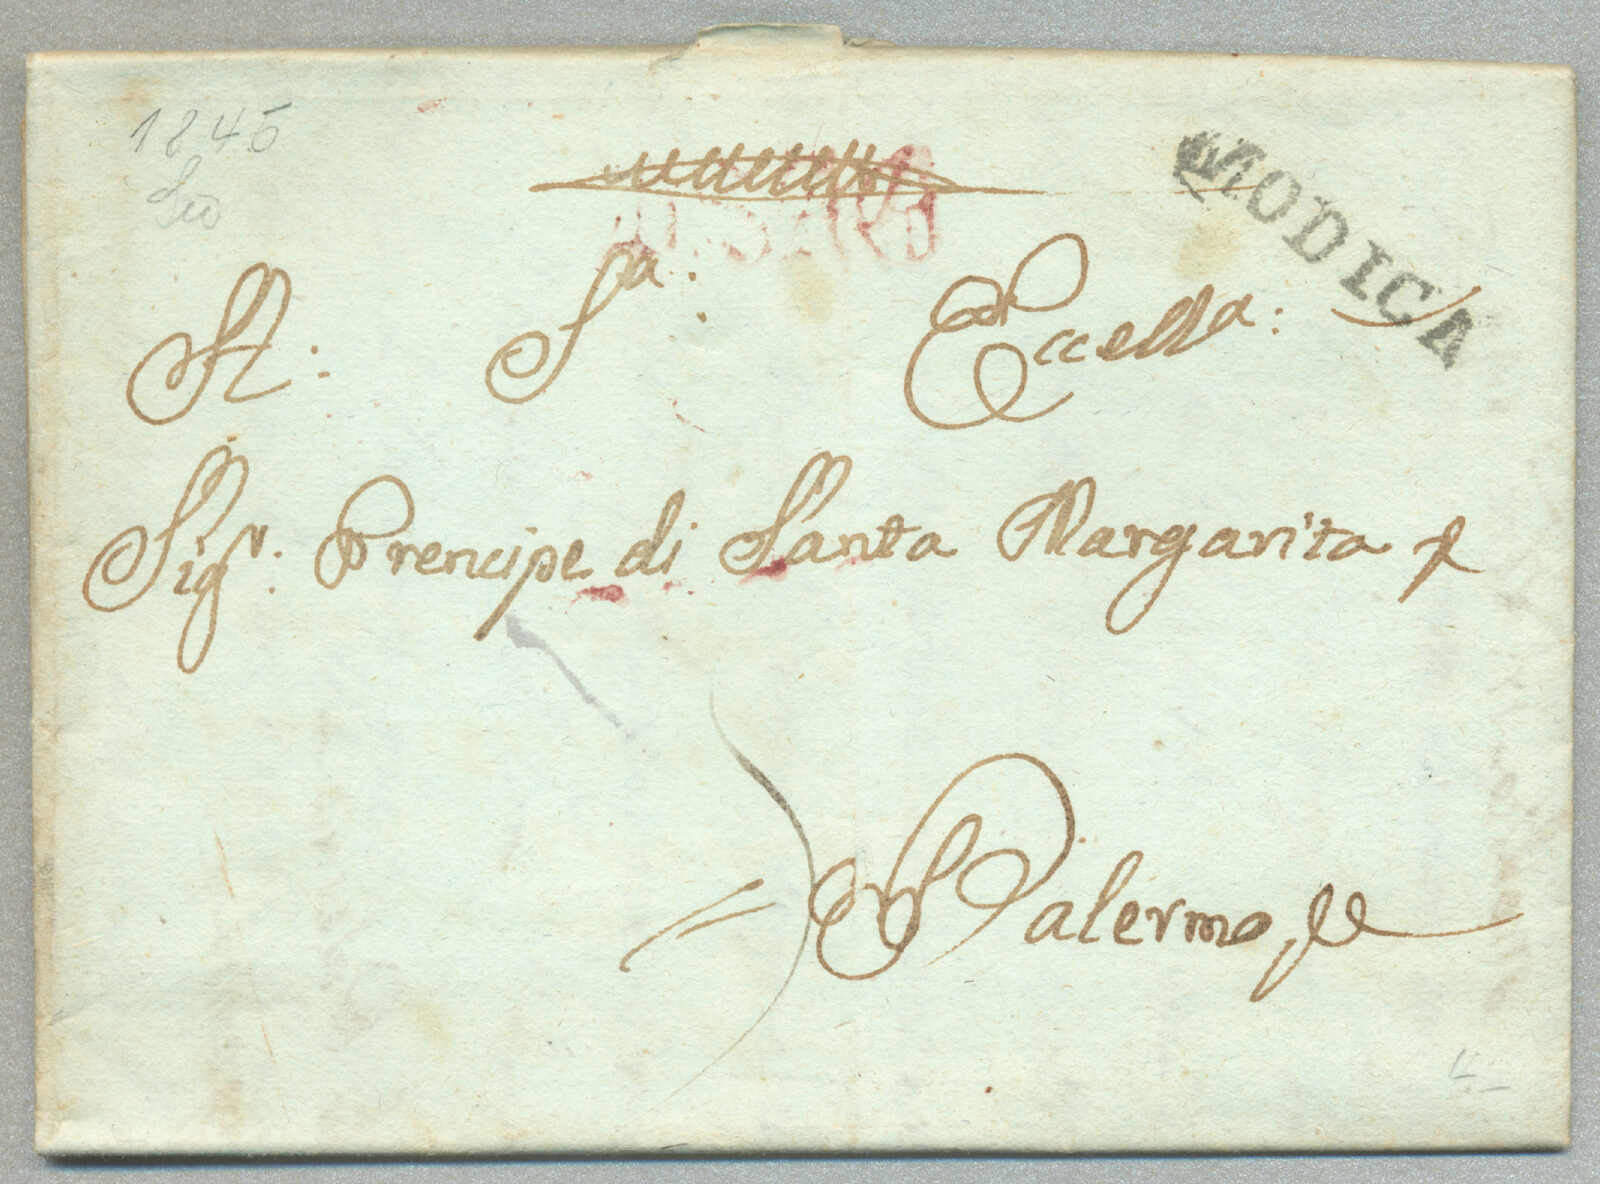 1845
MODICA
A: Sa: Eccellza:
Sigr: Prencipe di Santa Margarita
Palermo,